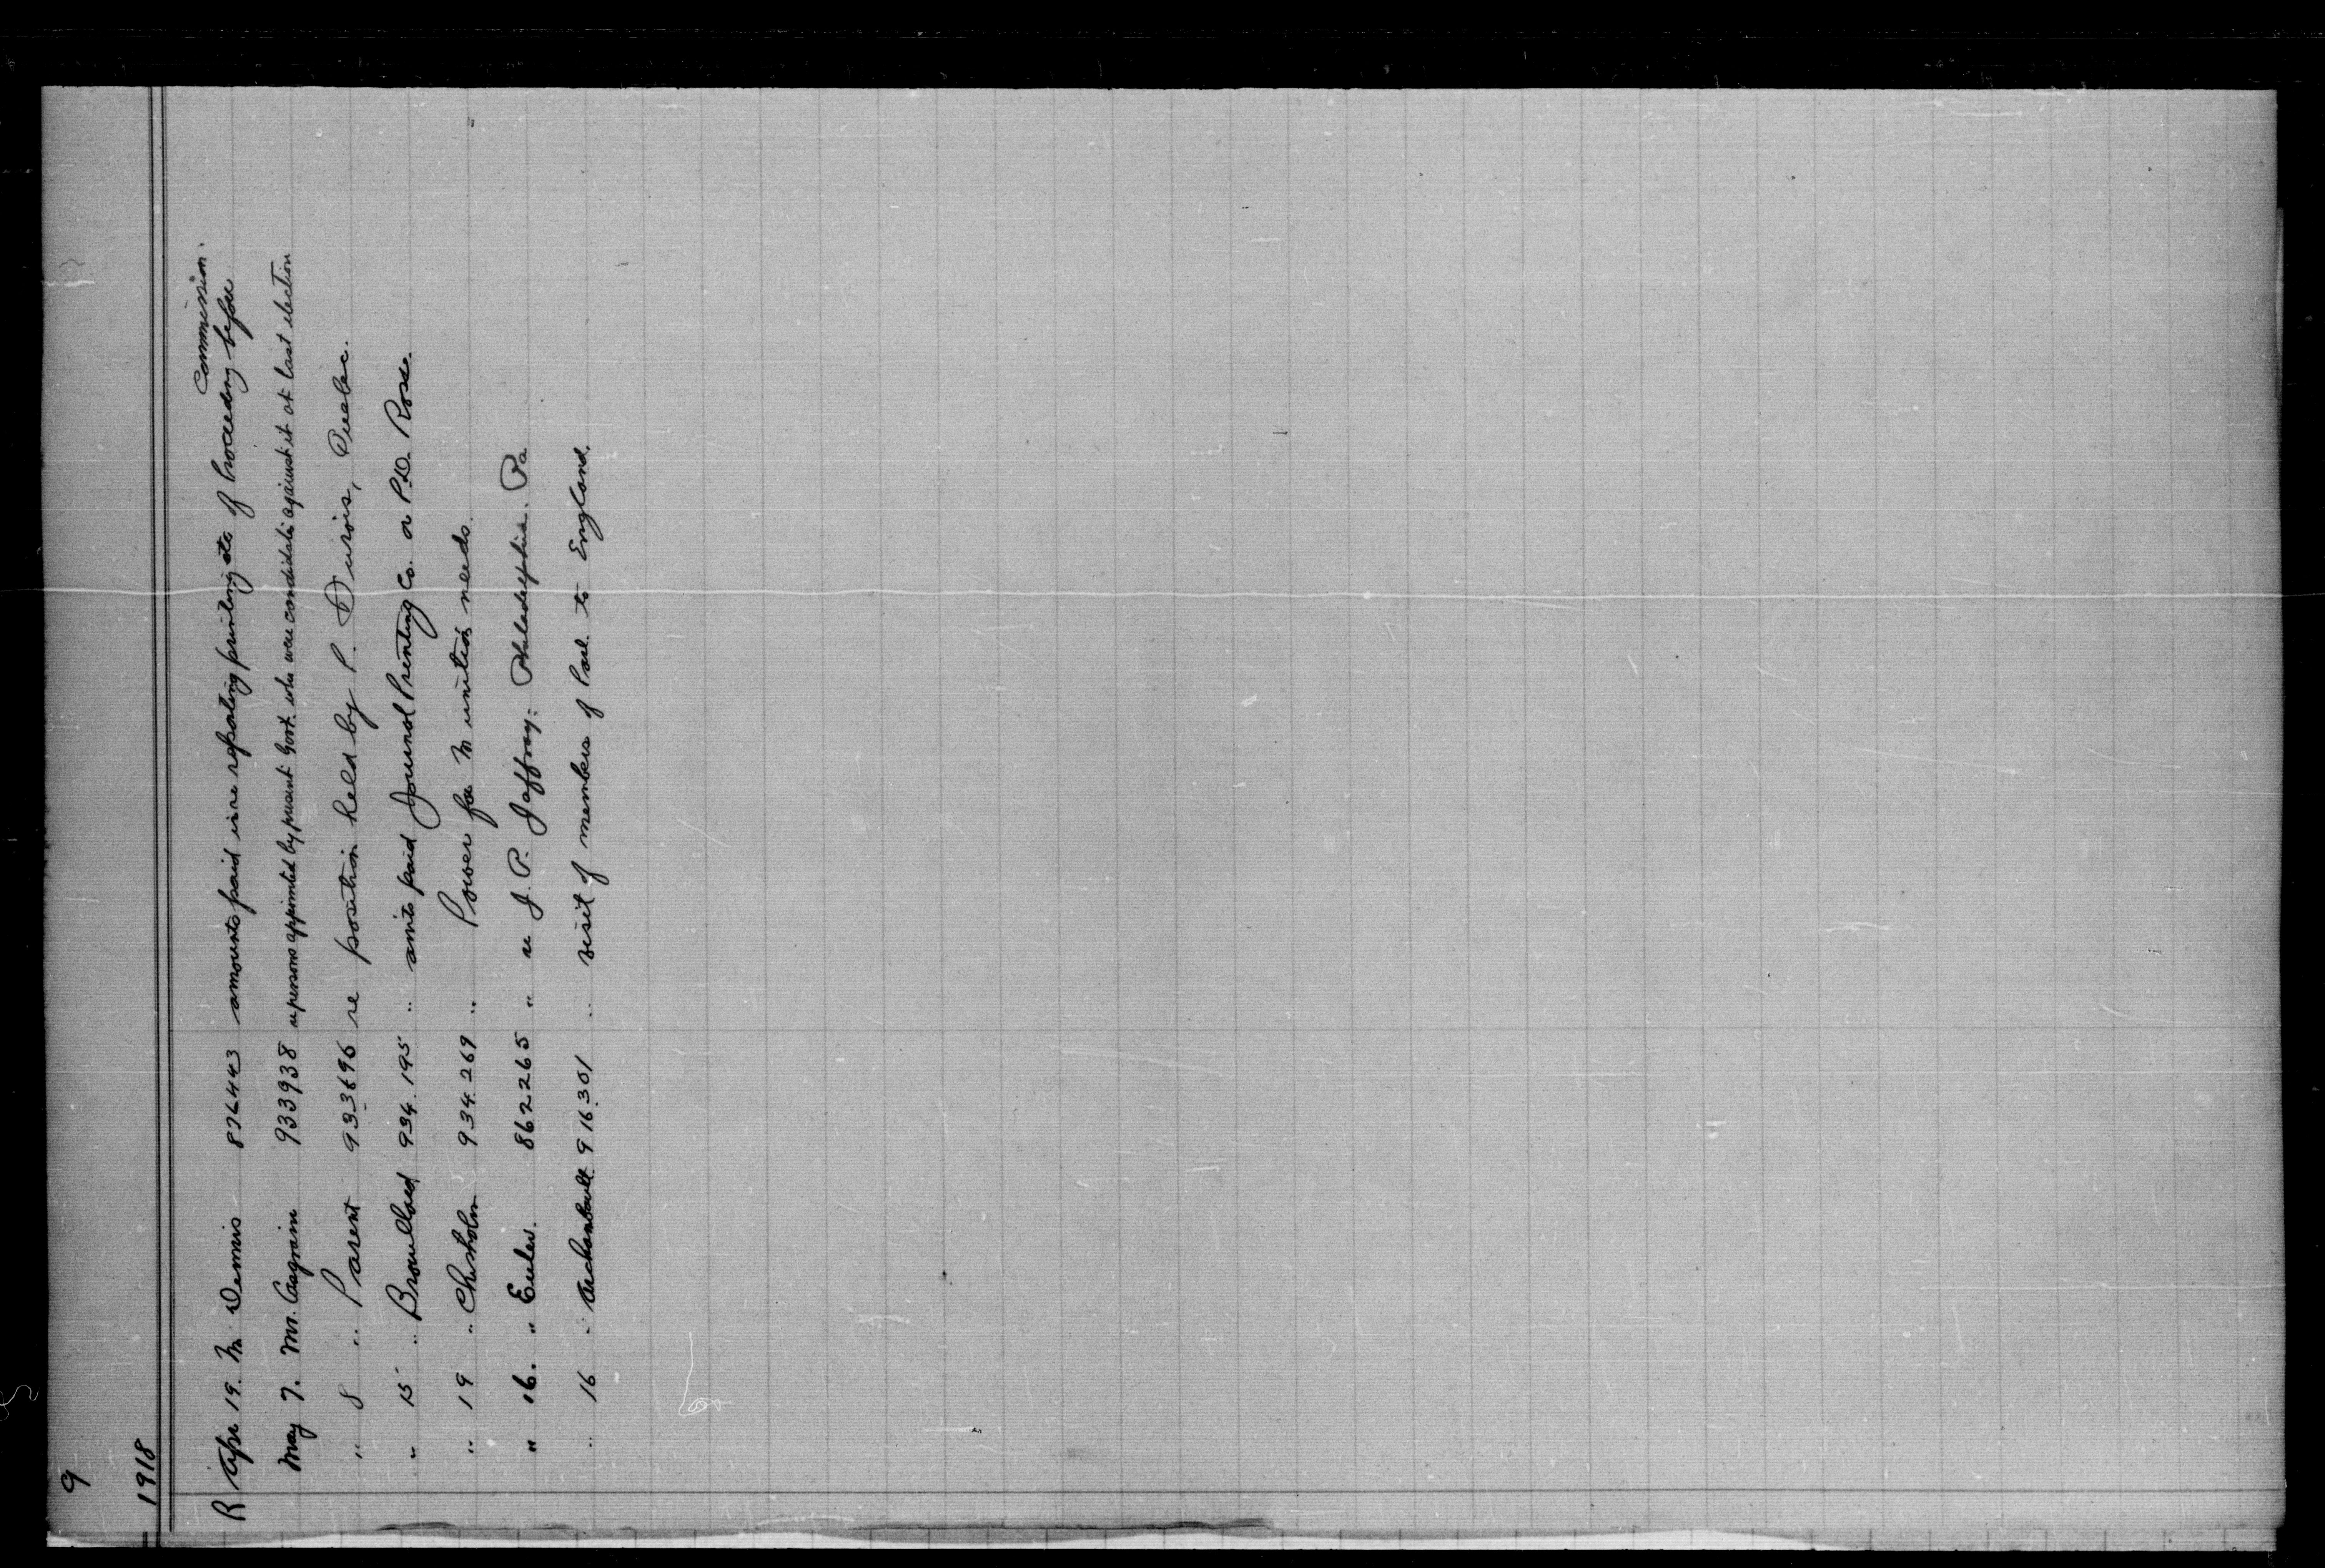 9
1918
commission.
R Apr 19. Mr Demis 876443 amounts paid in re reporting printing etc of Proceeding before
May 7. Mr. Casgrain 933938 re persons appointed by present Govt. who were candidates against it at last election
" 8 " Parent 933696 re position held by P. Durois, Quebec.
" 15 " Brouillard 934.195 " amts paid Journal Printing Co. or P.D. Ross.
" 19 " Chisholm 934.269 " Power for Munition needs.
" 16. " Euler. 862265 " re J. P. Jaffray: Philadelphia. Pa
" 16 " Archambault 916301 " visit of members of Parl. to England.